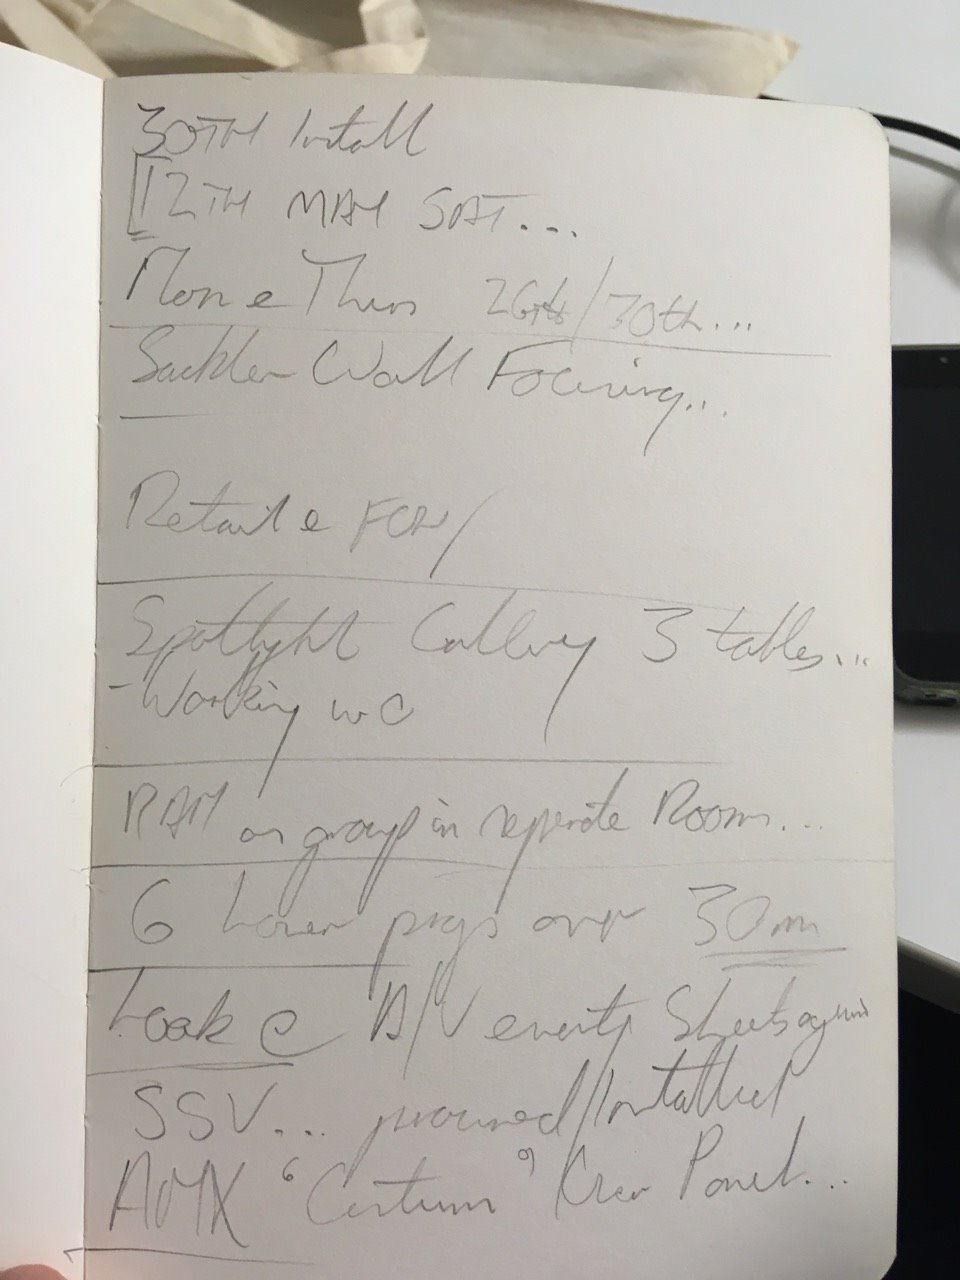 30TH Install
12TH MAY SAT...
Mon e Thurs 26th/30th...
Sackler Wall Focusing...
Retail e FOH/
Spotlight Gallery 3 tables...
- Working w C
RAM on group in seperate Room...
6 Laser over 30m
Look @ A/V events Sheets again
SSV... procured/Installed
AMX "Custom" User Panel...